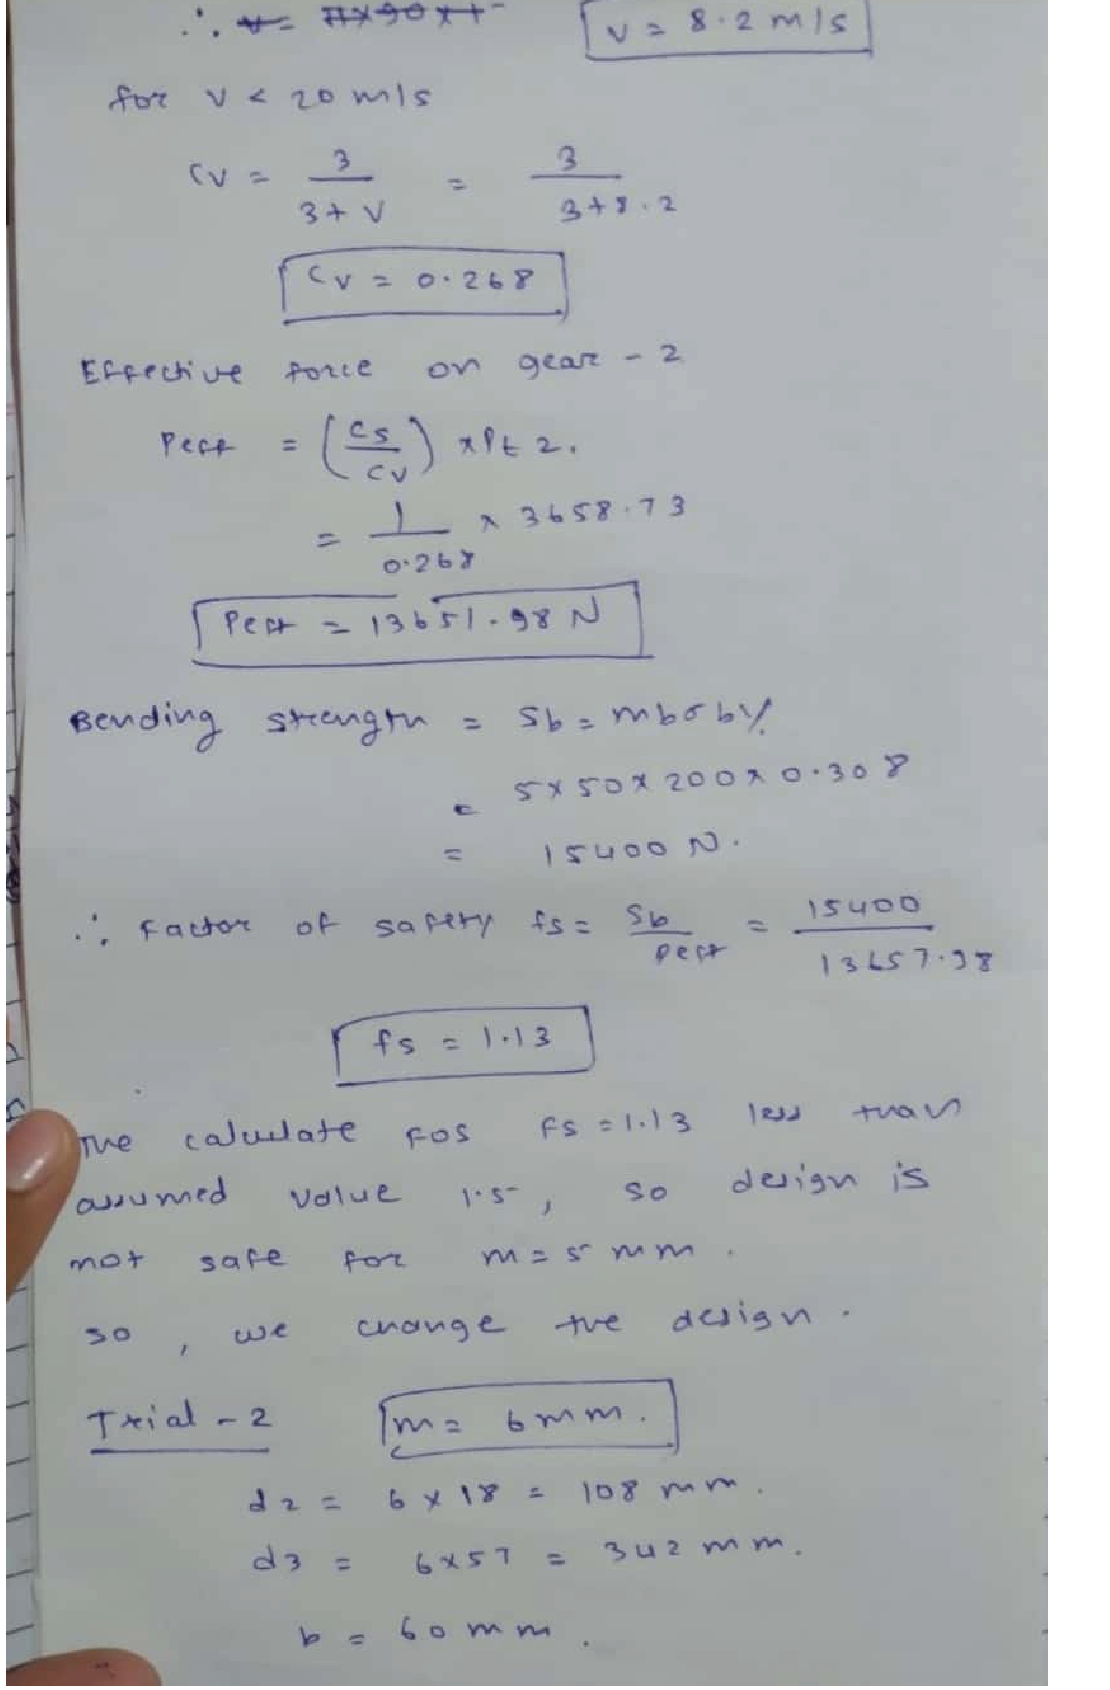 ∴ v = π×90×1
v = 8.2 m/s
for v < 20 m/s
Cv = 3 / (3 + v) = 3 / (3 + 8.2)
Cv = 0.268
Effective force on gear - 2
Peff = (Cs / Cv) × Pt 2.
= 1 / 0.268 × 3658.73
Peff = 13651.98 N
Bending strength = Sb = m b σb Y
= 5 × 50 × 200 × 0.308
= 15400 N.
∴ Factor of safety fs = Sb / Peff = 15400 / 13657.98
fs = 1.13
The calculate FOS Fs = 1.13 less than
assumed value 1.5, so design is
not safe for m = 5 mm.
so, we change the design.
Trial - 2 m = 6 mm.
d2 = 6 × 18 = 108 mm.
d3 = 6 × 57 = 342 mm.
b = 60 mm.